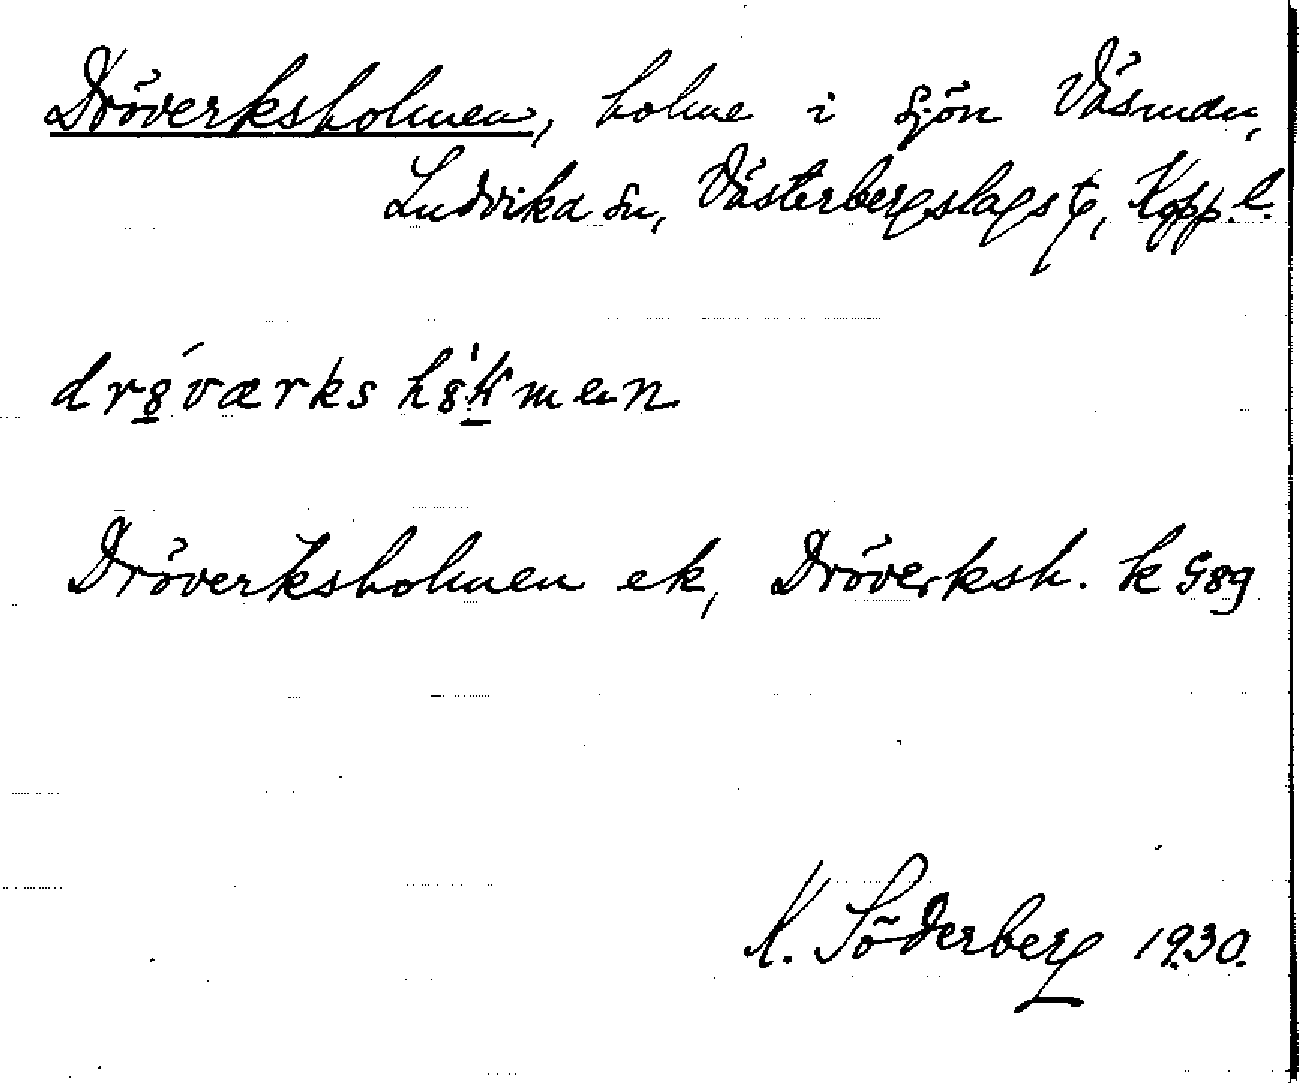 Dröverksholmen, holme i sjön Väsman,
Ludvika sn, Västerbergslags t, Kopp. l.
dr8́værks h8̍ɫmen
Dröverksholmen ek, Dröverksh. k G89
K. Söderberg 1930.